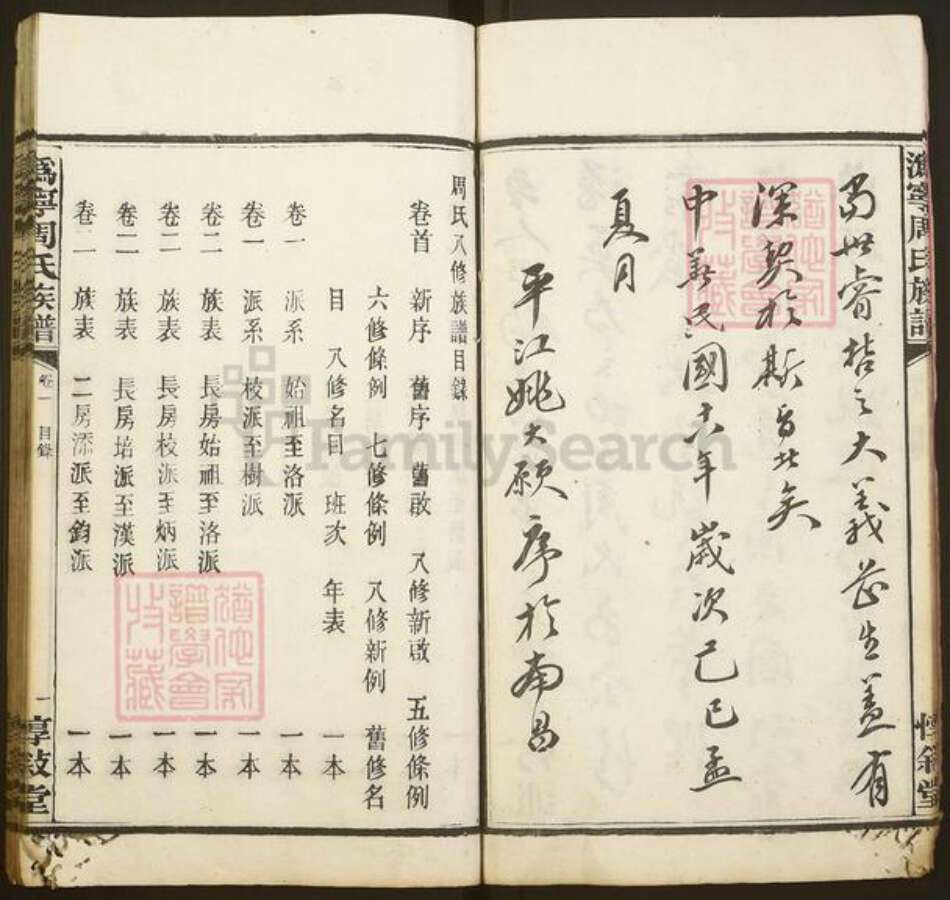 溈寧周氏族譜
惇敍堂
蜀世睿哲之大義茲生蓋有
深契於斯旨也矣
中華民國十八年歲次己巳孟
夏月
平江姚大願序於南昌
周氏八修族譜目錄
卷首 新序 舊序 舊啟 八修新啟 五修條例
六修條例 七修條例 八修新例 舊修名
目 八修名目 班次 年表 一本
卷一 派系 始祖至洛派 一本
卷一 派系 校派至樹派 一本
卷二 族表 長房始祖至洛派 一本
卷二 族表 長房校派至炳派 一本
卷二 族表 長房培派至漢派 一本
卷二 族表 二房添派至鈞派 一本
溈寧周氏族譜
卷一 目錄
一
惇敍堂
猶他家譜學會收藏
猶他家譜學會收藏
FamilySearch